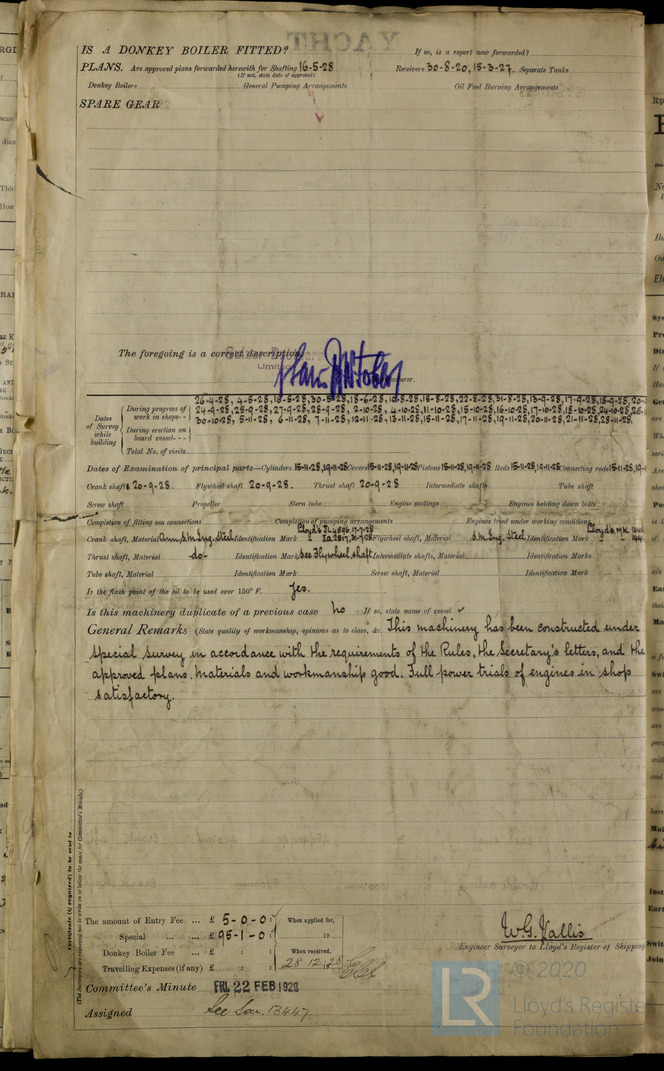 YACHT
IS A DONKEY BOILER FITTED? If so, is a report now forwarded?
PLANS. Are approved plans forwarded herewith for Shafting 16-5-28 Receivers 30-8-20, 15-3-27. Separate Tanks
(If not, state date of approval)
Donkey Boilers General Pumping Arrangements Oil Fuel Burning Arrangements
SPARE GEAR
The foregoing is a correct description,
Limited
Manufacturer.
Dates of Survey while building
During progress of work in shops--
26-4-28, 4-5-28, 16-5-28, 30-5-28, 18-6-28, 10-8-28, 15-8-28, 22-8-28, 31-8-28, 13-9-28, 17-9-28, 18-9-28, 20-
24-9-28, 25-9-28, 27-9-28, 28-9-28, 2-10-28, 4-10-28, 11-10-28, 15-10-28, 16-10-28, 17-10-28, 18-10-28, 24-10-28, 26-
During erection on board vessel---
30-10-28, 5-11-28, 6-11-28, 7-11-28, 12-11-28, 13-11-28, 15-11-28, 17-11-28, 19-11-28, 20-11-28, 21-11-28, 28-11-28.
Total No. of visits
Dates of Examination of principal parts—Cylinders 15-11-28, 19-11-28 Covers 15-11-28, 19-11-28 Pistons 15-11-28, 19-11-28 Rods 15-11-28, 19-11-28 Connecting rods 15-11-28, 19-
Crank shaft 20-9-28. Flywheel shaft 20-9-28. Thrust shaft 20-9-28 Intermediate shafts Tube shaft
Screw shaft Propeller Stern tube Engine seatings Engines holding down bolts
Completion of fitting sea connections Completion of pumping arrangements Engines tried under working conditions
Crank shaft, Material S.M. Ing. Steel Identification Mark Lloyd's Flywheel shaft, Material S.M. Ing. Steel Identification Mark
Thrust shaft, Material -do- Identification Mark See Flywheel shaft Intermediate shafts, Material Identification Marks
Tube shaft, Material Identification Mark Screw shaft, Material Identification Mark
Is the flash point of the oil to be used over 150° F. Yes.
Is this machinery duplicate of a previous case No If so, state name of vessel
General Remarks (State quality of workmanship, opinions as to class, &c. This machinery has been constructed under
special survey in accordance with the requirements of the Rules, the Secretary's letters, and the
approved plans. Materials and workmanship good. Full power trials of engines in shop
satisfactory.
Certificate (if required) to be sent to
(The Surveyors are requested not to write on or below the space for Committee's Minute.)
The amount of Entry Fee ... £ 5-0-0: When applied for,
Special ... £ 95-1-0: 19
Donkey Boiler Fee ... £ : : When received,
Travelling Expenses (if any) £ : : 28.12.28
W.G. Vallis
Engineer Surveyor to Lloyd's Register of Shipping
Committee's Minute FRI. 22 FEB 1929
Assigned See Sou. 13447
LR
© 2020
Lloyd's Register
Foundation